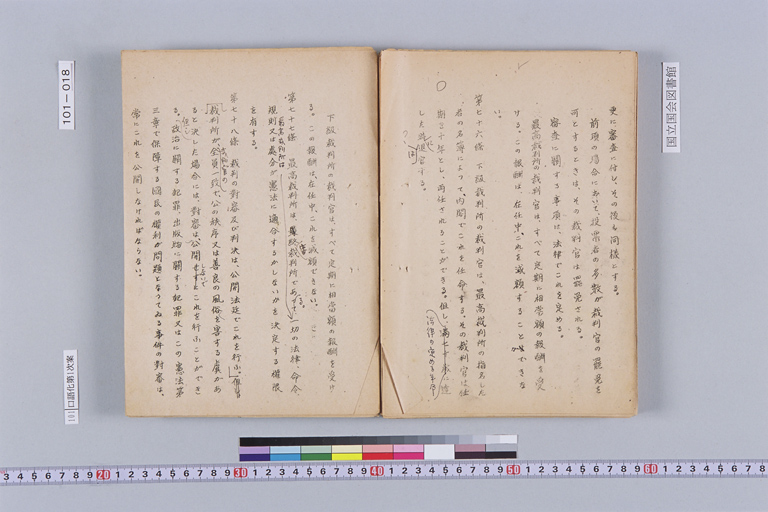 更に審査に付し、その後も同様とする。
前項の場合において、投票者の多数が裁判官の罷免を
可とするときは、その裁判官は罷免される。
審査に関する事項は、法律でこれを定める。
最高裁判所の裁判官は、すべて定期に相当額の報酬を受
ける。この報酬は、在任中、これを減額することができな
い。
第七十六條 下級裁判所の裁判官は、最高裁判所の指名した
者の名簿によつて、内閣でこれを任命する。その裁判官は任
期を十年とし、再任されることができる。但し、満七十歳に達
した時
退官する。
法律の定める年齢
下級裁判所の裁判官は、すべて定期に相当額の報酬を受け
る。この報酬は、在任中、これを減額できない。
第七十七條 最高裁判所は、終審裁判所である。
最高裁判所は、
一切の法律、命令
規則又は処分が憲法に適合するかしないかを決定する権限
を有する。
第七十八條 裁判の対審及び判決は、公開法廷でこれを行ふ。
裁判所が、全員一致で、公の秩序又は善良の風俗を害する虞があ
裁判官の
ると決した場合には、対審は、公開しないでこれを行ふことができ
る。但し、政治に関する犯罪、出版物に関する犯罪又はこの憲法第
三章で保障する国民の権利が問題となつてゐる事件の対審は、
常にこれを公開しなければならない。
101-018
口語化第1次案
国立国会図書館
3 4 5 6 7 8 9 20 1 2 3 4 5 6 7 8 9 30 1 2 3 4 5 6 7 8 9 40 1 2 3 4 5 6 7 8 9 50 1 2 3 4 5 6 7 8 9 60 1 2 3 4 5 6 7 8